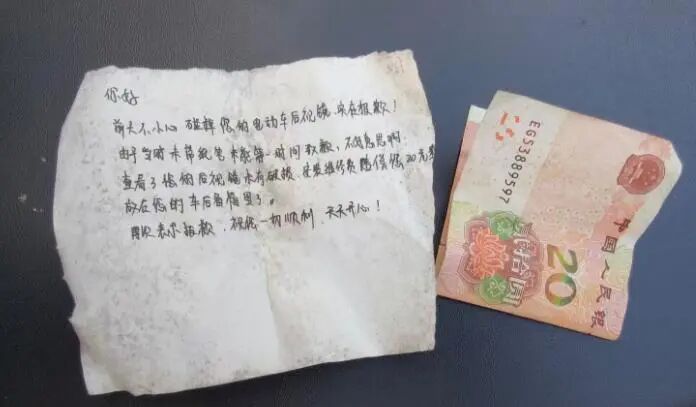 你好
前天不小心碰掉您的电动车后视镜实在抱歉！
由于当时未带纸笔未能第一时间致歉，不好意思啊
查看了您的后视镜未有破损、安装维修费赔偿您20元
放在您的车后备箱里了。
再次表示抱歉，祝您一切顺利，天天开心！
EG53889597
中国人民银
贰拾圆
20